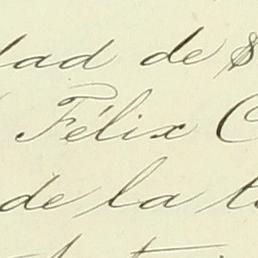 dad de $
Félix C
de la t